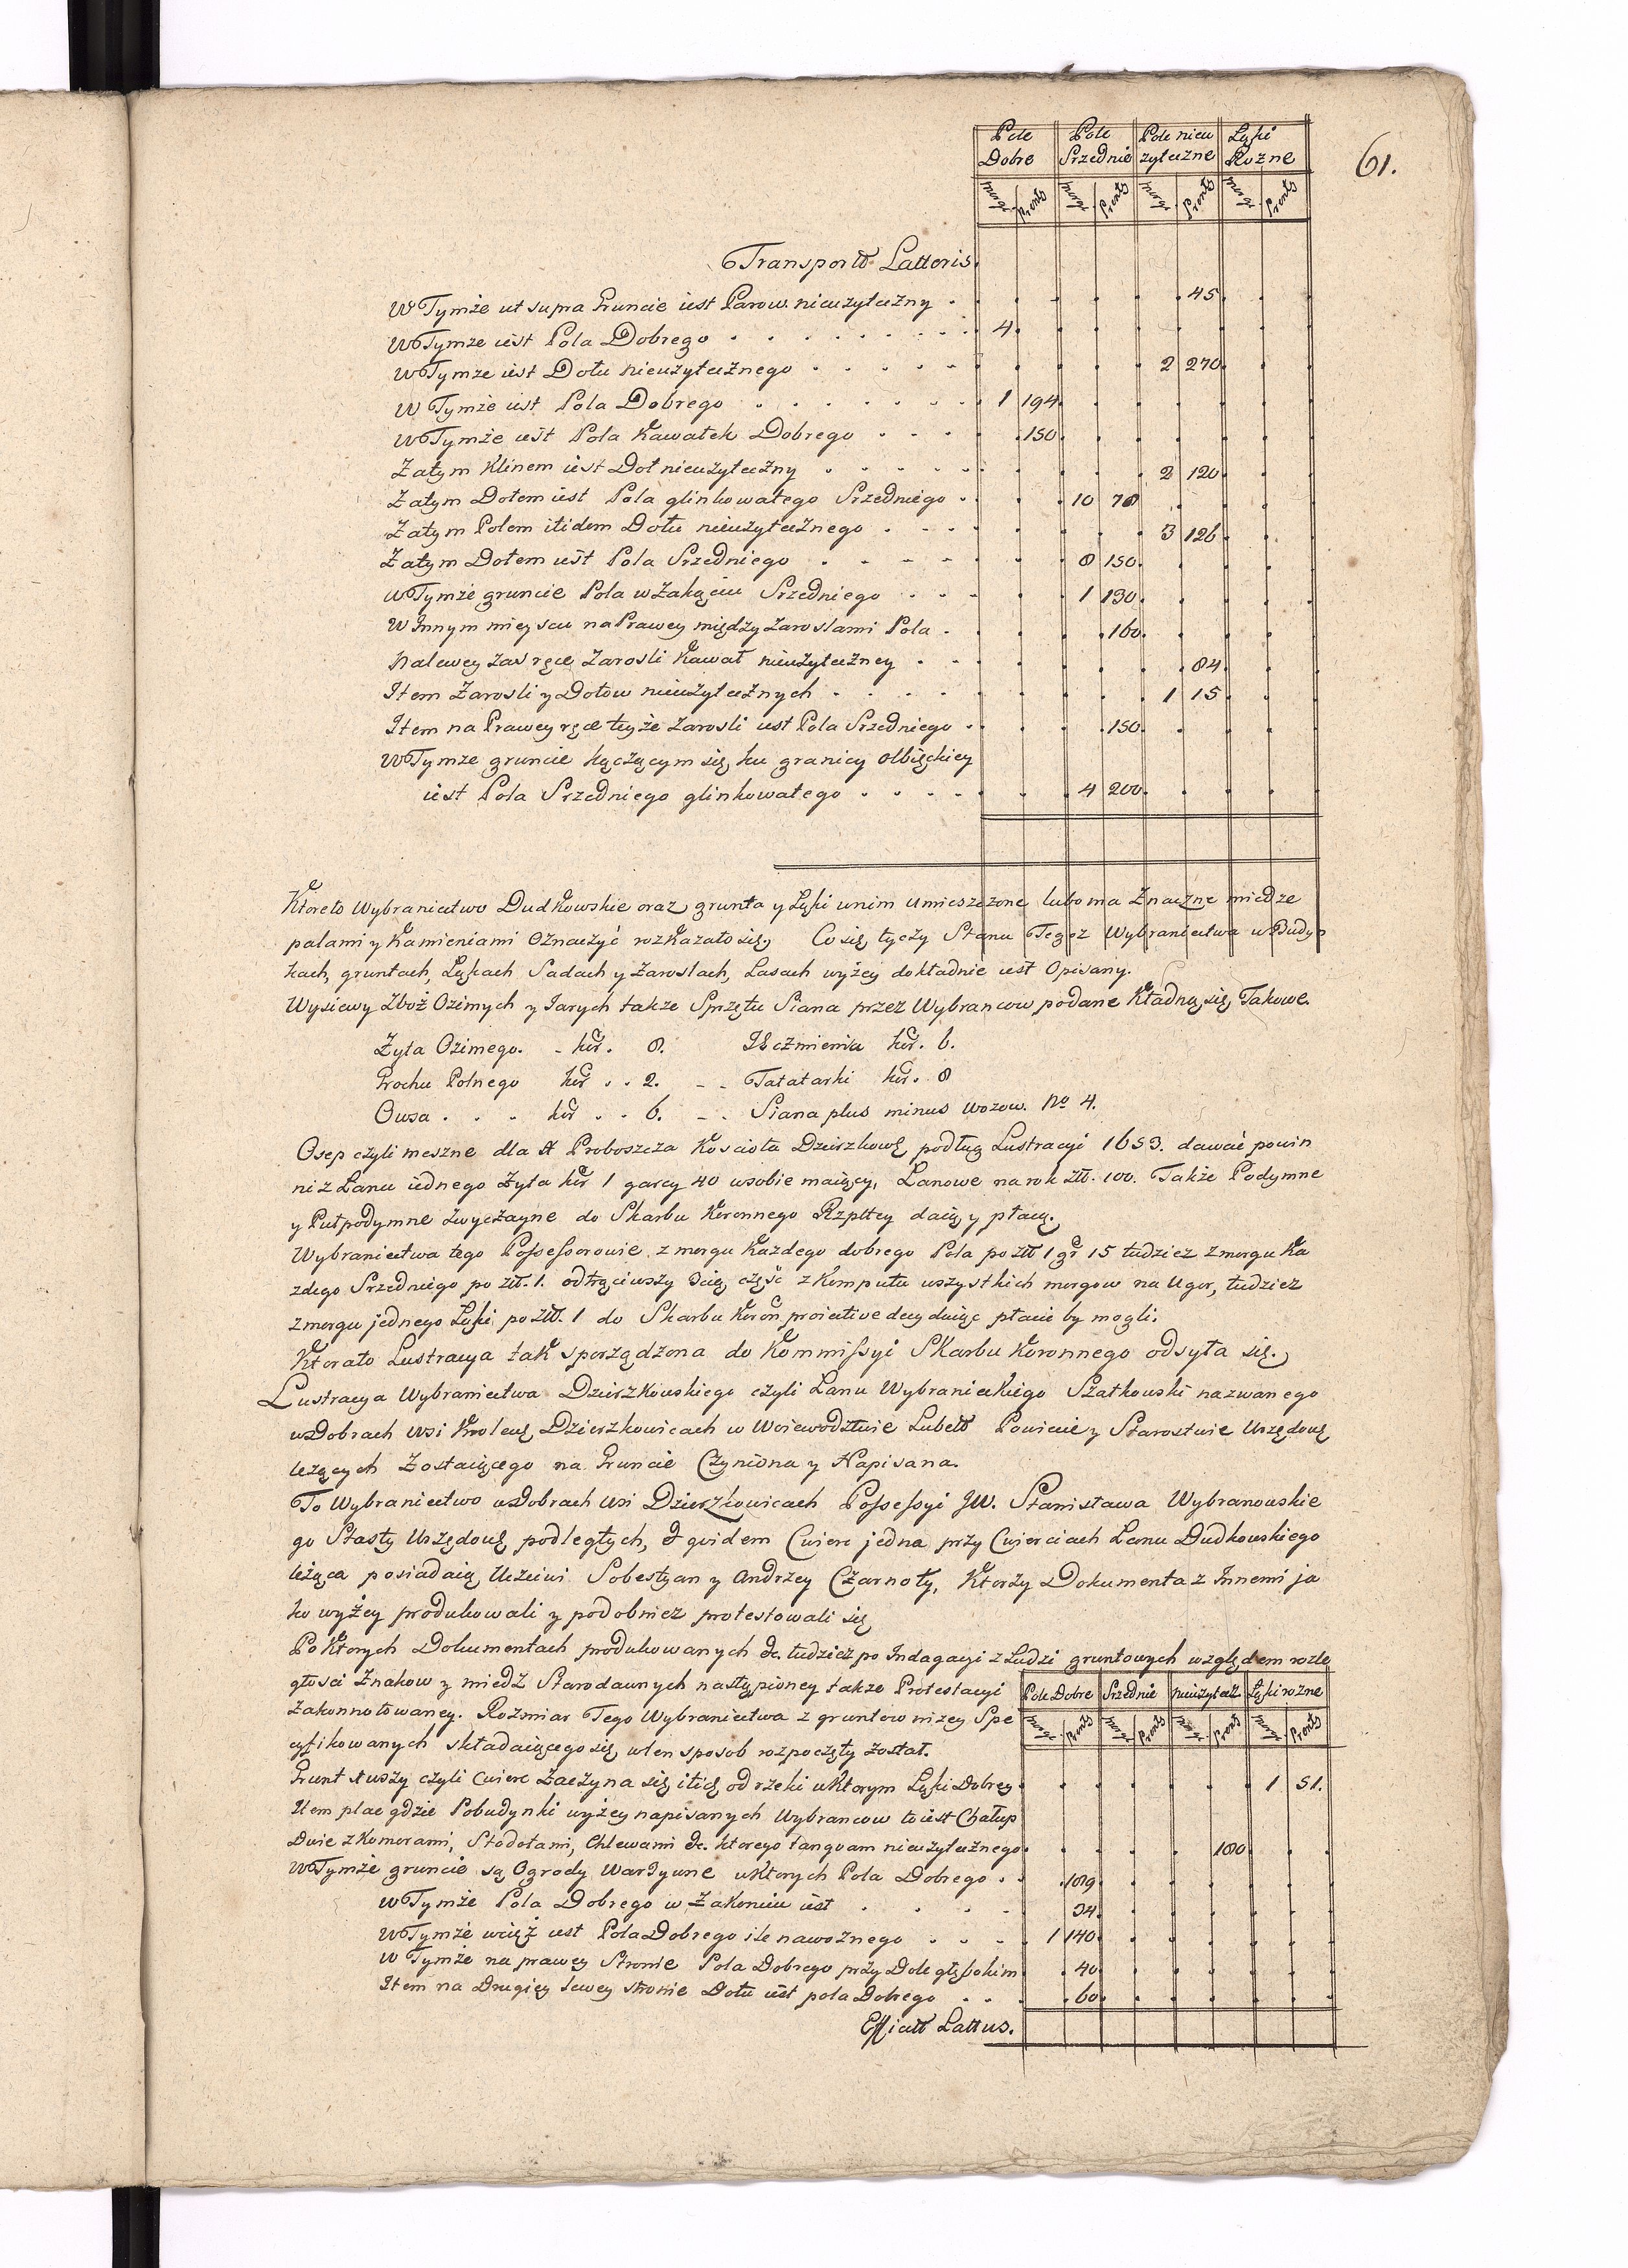 61.
Pole Dobre | Pole Srzednie | Pole nieużyteczne | Łąki Rozne
Morgi | Pręty | Morgi | Pręty | Morgi | Pręty | Morgi | Pręty
Transport Latteris
W Tymże ut supra Gruncie iest Parow nieużyteczny . 45
W Tymże iest Pola Dobrego . . . 4
W Tymże iest Dołu nieużytecznego . . . 2 270
W Tymże iest Pola Dobrego . . . 1 194
W Tymże iest Pola Kawałek Dobrego . . . 150
Zatym Klinem iest Doł nieużyteczny . . . 2 120
Zatym Dołem iest Pola glinkowatego Srzedniego . . 10 78
Zatym Polem itidem Dołu nieużytecznego . . . 3 126
Zatym Dołem iest Pola Srzedniego . . . 8 150
W Tymże gruncie Pola w Zakąciu Srzedniego . . . 1 130
W Innym mieyscu na Prawey między Zaroslami Pola . 160
Na lewey zas ręce Zarosli Kawał nieużyteczney . . 84
Item Zarosli y Dołow nieużytecznych . . . 1 15
Item na Prawey ręce teyże Zarosli iest Pola Srzedniego . 150
W Tymże gruncie kączącym się ku granicy olbięckiey
iest Pola Srzedniego glinkowatego . . . 4 200
Ktoreto Wybraniectwo Dudkowskie oraz grunta y Łąki w nim umieszczone lubo ma Znaczne miedze
palami y Kamieniami Oznaczyć rozkazało się, Co się tyczy Stanu Tegoz Wybraniectwa w Budyn
kach, gruntach, Łąkach Sadach y Zaroslach, Lasach wyżey dokładnie iest Opisany.
Wysiewy Zboż Ozimych y Jarych także Sprzętu Siana przez Wybrancow podane Kładną się Takowe.
Żyta Ozimego. - kor. 8. Jęczmienia kor. 6.
Grochu Polnego kor . . 2. - - Tatatarki kor. 8
Owsa . . . kor . . 6. - . Siana plus minus wozow. No 4.
Osep czyli meszne dla X Proboszcza Koscioła Dzierzkows podług Lustracyi 1653. dawać powin
ni z Łanu iednego Żyta kor 1 garcy 40 w sobie maiący, Łanowe na rok złł. 100. Także Podymne
y Pułpodymne Zwyczayne do Skarbu Koronnego Rzpltey daią y płacą.
Wybraniectwa tego Possessorowie z morgu Każdego dobrego Pola po złł 1 gr 15 tudziez z morgu Ka
zdego Srzedniego po złł. 1. odtrąciwszy 3cią część z Komputu wszystkich morgow na Ugor, tudziez
z morgu jednego Łąki po złł. 1 do Skarbu Koron proiective decyduiąc płacić by mogli.
Ktorato Lustracya tak sporządzona do Kommissyi Skarbu Koronnego odsyła się.
Lustracya Wybraniectwa Dzierzkowskiego czyli Łanu Wybranieckiego Szatkowski nazwanego
w Dobrach wsi Krolews Dzierzkowicach w Woiewodztwie Lubelł Powiecie y Starostwie Urzędows
leżących Zostaiącego na Gruncie Czyniona y Napisana.
To Wybraniectwo w Dobrach wsi Dzierzkowicach Possessyi JW. Stanisława Wybranowskie
go Stasty Urzędows podległych, & quidem Cwierc jedna przy Cwierciach Łanu Dudkowskiego
leżąca posiadaią Uczciwi Sobestyan y Andrzey Czarnoty, Ktorzy Dokumenta z Innemi ja
ko wyżey produkowali y podobniez protestowali się
Po Ktorych Dokumentach produkowanych &c. tudziez po Indagacyi z Ludzi gruntowych względem rozle
głosci Znakow y miedz Starodawnych nastąpioney także Protestacyi
Zakonnotowaney. Rozmiar Tego Wybraniectwa z gruntow niżey Spe
cyfikowanych składaiącego się w ten sposob rozpoczęty został.
Pole Dobre | Srzednie | nieużytecz | Łąki rozne
Morgi | Pręty | Morgi | Pręty | Morgi | Pręty | Morgi | Pręty
Grunt wszy czyli Cwierc Zaczyna się itid od rzeki w Ktorym Łąki Dobrey . 1 51.
Item plac gdzie Pobudynki wyżey napisanych Wybrancow to iest Chałup
Dwie z Komorami, Stodołami, Chlewami &c. ktorego tanquam nieużytecznego . 180
W Tymże gruncie są Ogrody Warzywne w Ktorych Pola Dobrego . . 189
W Tymże Pola Dobrego w Zakoniu iest . . . 34.
W Tymże wciąż iest Pola Dobrego ile nawoznego . . . 1 140
W Tymże na prawey Stronie Pola Dobrego przy Dole głębokim 40
Item na Drugiey lewey stronie Dołu iest pola Dobrego . . 60
Efficit Lattus.